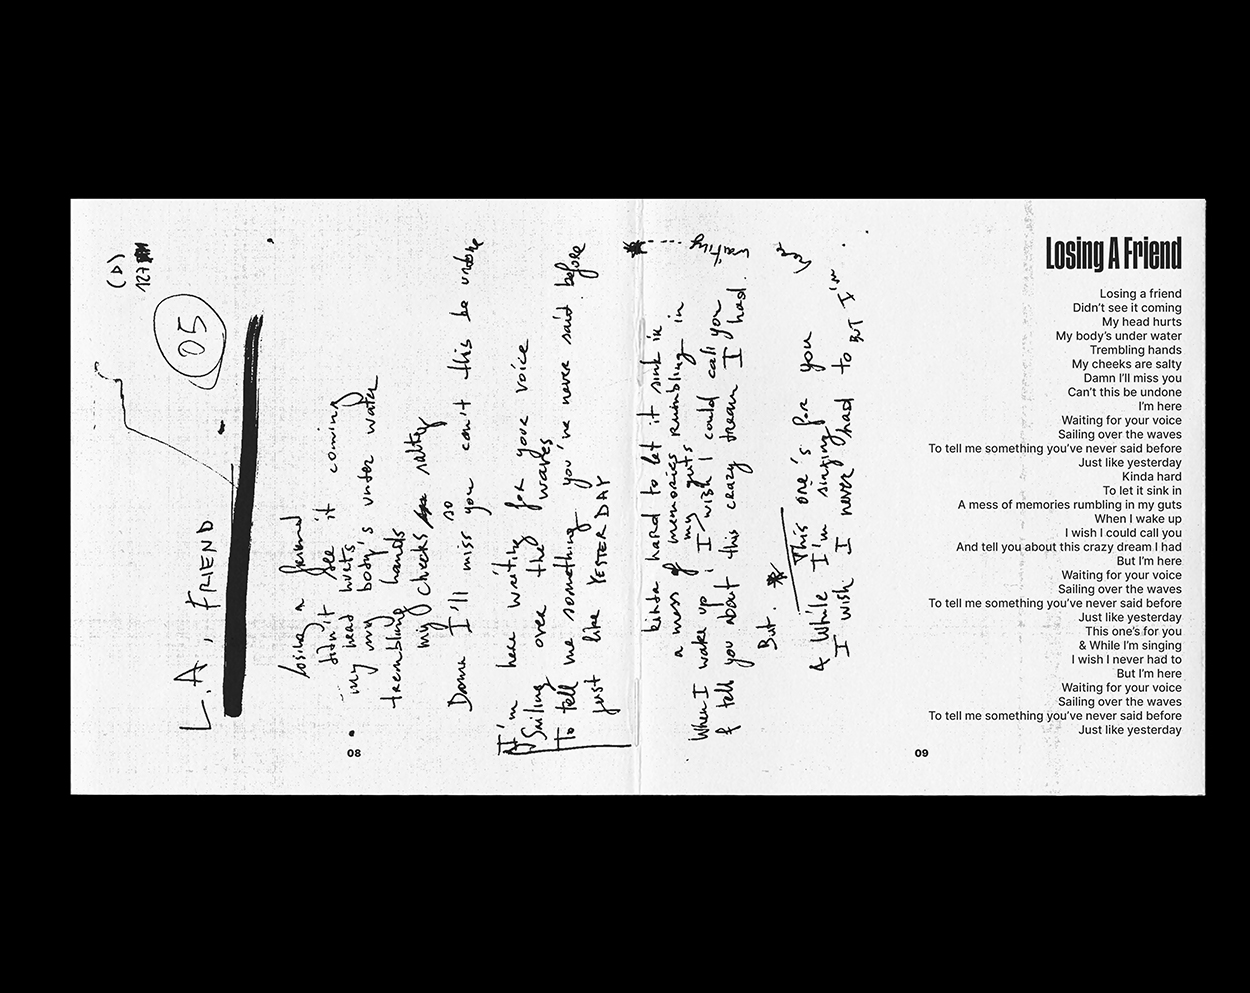 (D)
127
05
L.A. FRIEND
losing a friend
didn't see it coming
my head hurts
my body's under water
trembling hands
my cheeks salty
so
Damn I'll miss you can't this be undone
I'm here waiting for your voice
Sailing over the waves
To tell me something you've never said before
just like YESTERDAY
08
kinda hard to let it sink in
a mess of memories rumbling in
my guts
When I wake up I wish I could call you
& tell you about this crazy dream I had.
But.
waiting
This one's for you
& While I'm singing
I wish I never had to BUT I'm
09
Losing A Friend
Losing a friend
Didn't see it coming
My head hurts
My body's under water
Trembling hands
My cheeks are salty
Damn I'll miss you
Can't this be undone
I'm here
Waiting for your voice
Sailing over the waves
To tell me something you've never said before
Just like yesterday
Kinda hard
To let it sink in
A mess of memories rumbling in my guts
When I wake up
I wish I could call you
And tell you about this crazy dream I had
But I'm here
Waiting for your voice
Sailing over the waves
To tell me something you've never said before
Just like yesterday
This one's for you
& While I'm singing
I wish I never had to
But I'm here
Waiting for your voice
Sailing over the waves
To tell me something you've never said before
Just like yesterday